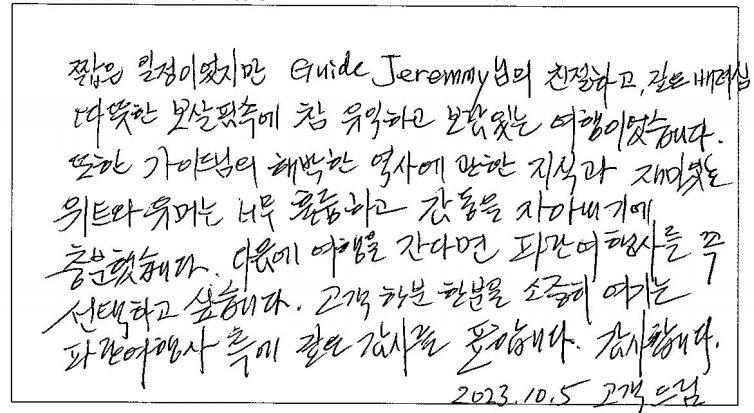 짧은 일정이었지만 Guide Jeremmy님의 친절하고, 깊은 배려심
따뜻한 보살핌속에 참 유익하고 보람있는 여행이었습니다.
또한 가이드님의 해박한 역사에 관한 지식과 재미있는
위트와 유머는 너무 훌륭하고 감동을 자아내기에
충분했습니다. 다음에 여행을 간다면 파란여행사를 꼭
선택하고 싶습니다. 고객 한분 한분을 소중히 여기는
파란여행사 측에 깊은 감사를 표합니다. 감사합니다.
2023.10.5 고객 드림